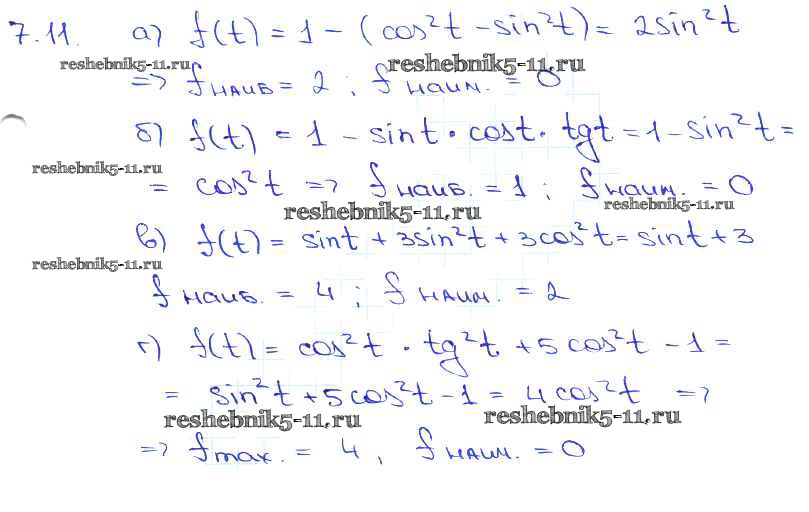 7.11. а) f(t) = 1 - (cos²t - sin²t) = 2sin²t
reshebnik5-11.ru reshebnik5-11.ru
=> fнаиб = 2 ; fнаим. = 0
б) f(t) = 1 - sint · cost · tgt = 1 - sin²t =
reshebnik5-11.ru
= cos²t => fнаиб. = 1 ; fнаим. = 0
reshebnik5-11.ru reshebnik5-11.ru
в) f(t) = sint + 3sin²t + 3cos²t = sint + 3
reshebnik5-11.ru
fнаиб. = 4 ; fнаим. = 2
г) f(t) = cos²t · tg²t + 5cos²t - 1 =
= sin²t + 5cos²t - 1 = 4cos²t =>
reshebnik5-11.ru reshebnik5-11.ru
=> fmax. = 4 , fнаим. = 0